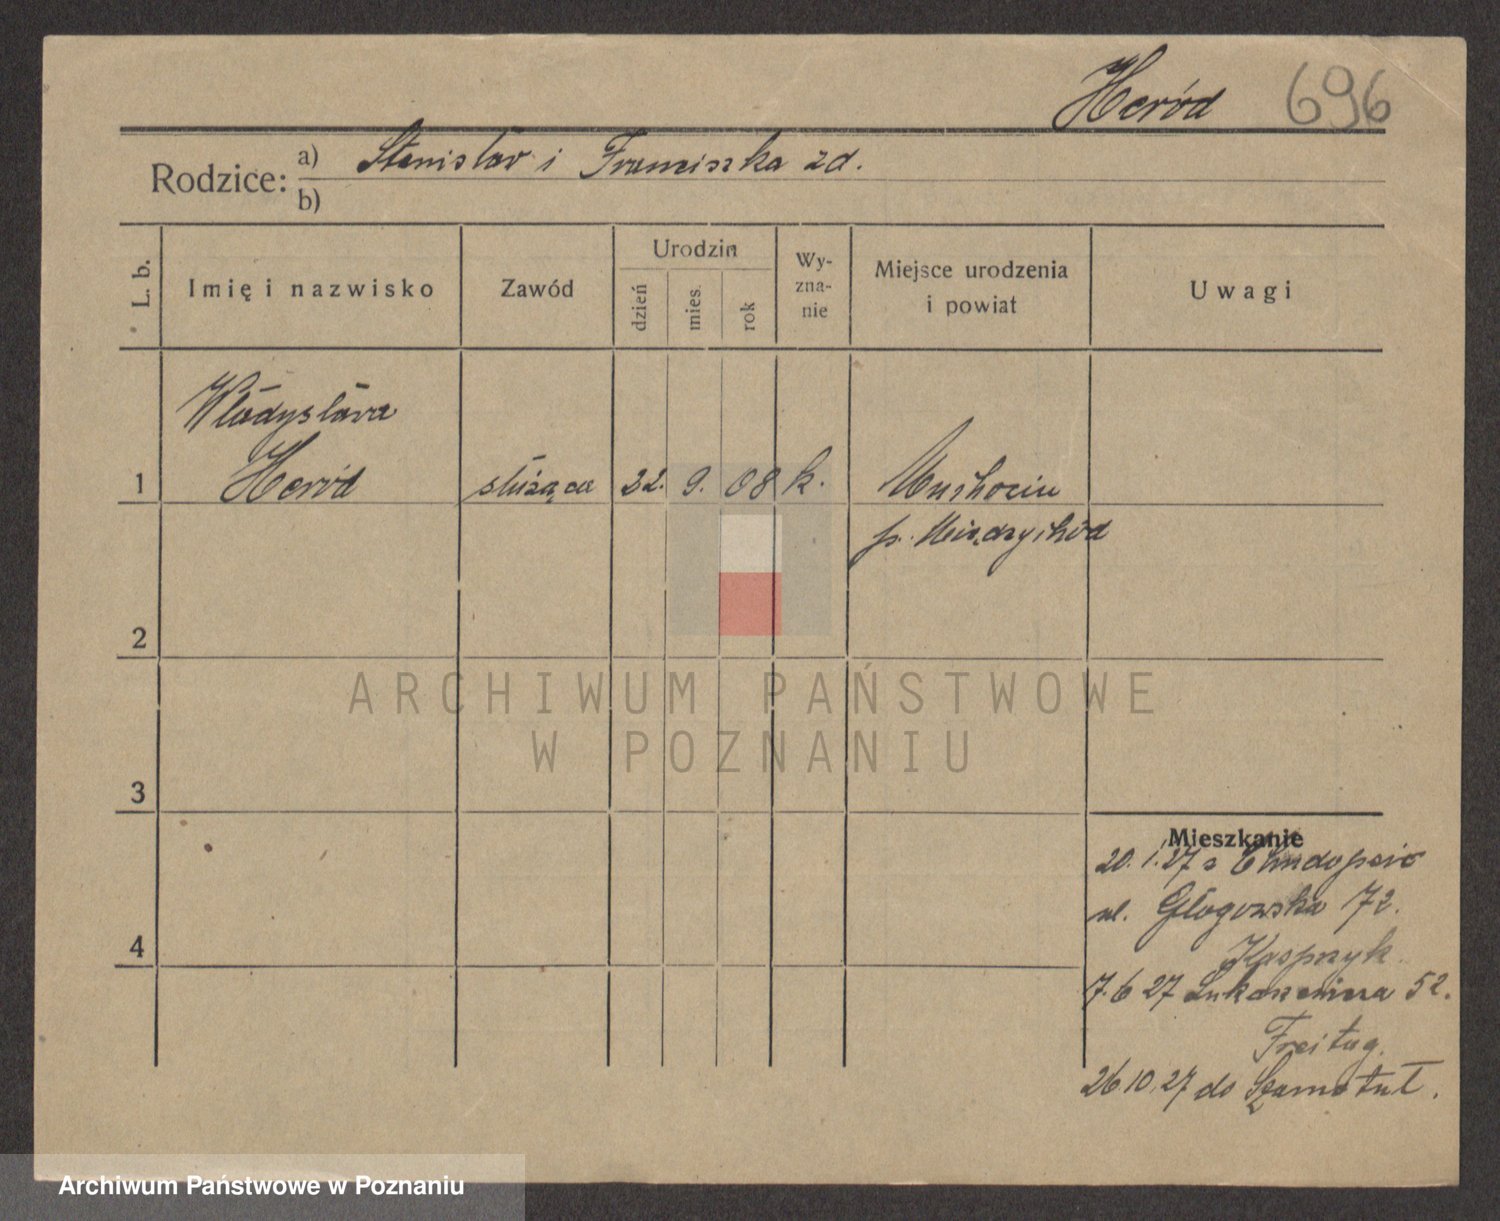 Heród 696
Rodzice: a) Stanisław i Franciszka zd.
b)
L. b. Imię i nazwisko Zawód Urodzin dzień mies. rok Wyznanie Miejsce urodzenia i powiat Uwagi
Władysława
1 Heród służąca 22. 9. 08 k. Muchocin
p. Międzychód
2
ARCHIWUM PAŃSTWOWE
W POZNANIU
3
Mieszkanie
20.1.27 z
ul. Głogowska 72.
4 Kasprzyk
7.6 27 Łukaszewicza 52.
Freitag.
26.10.27 do Szamotuł.
Archiwum Państwowe w Poznaniu